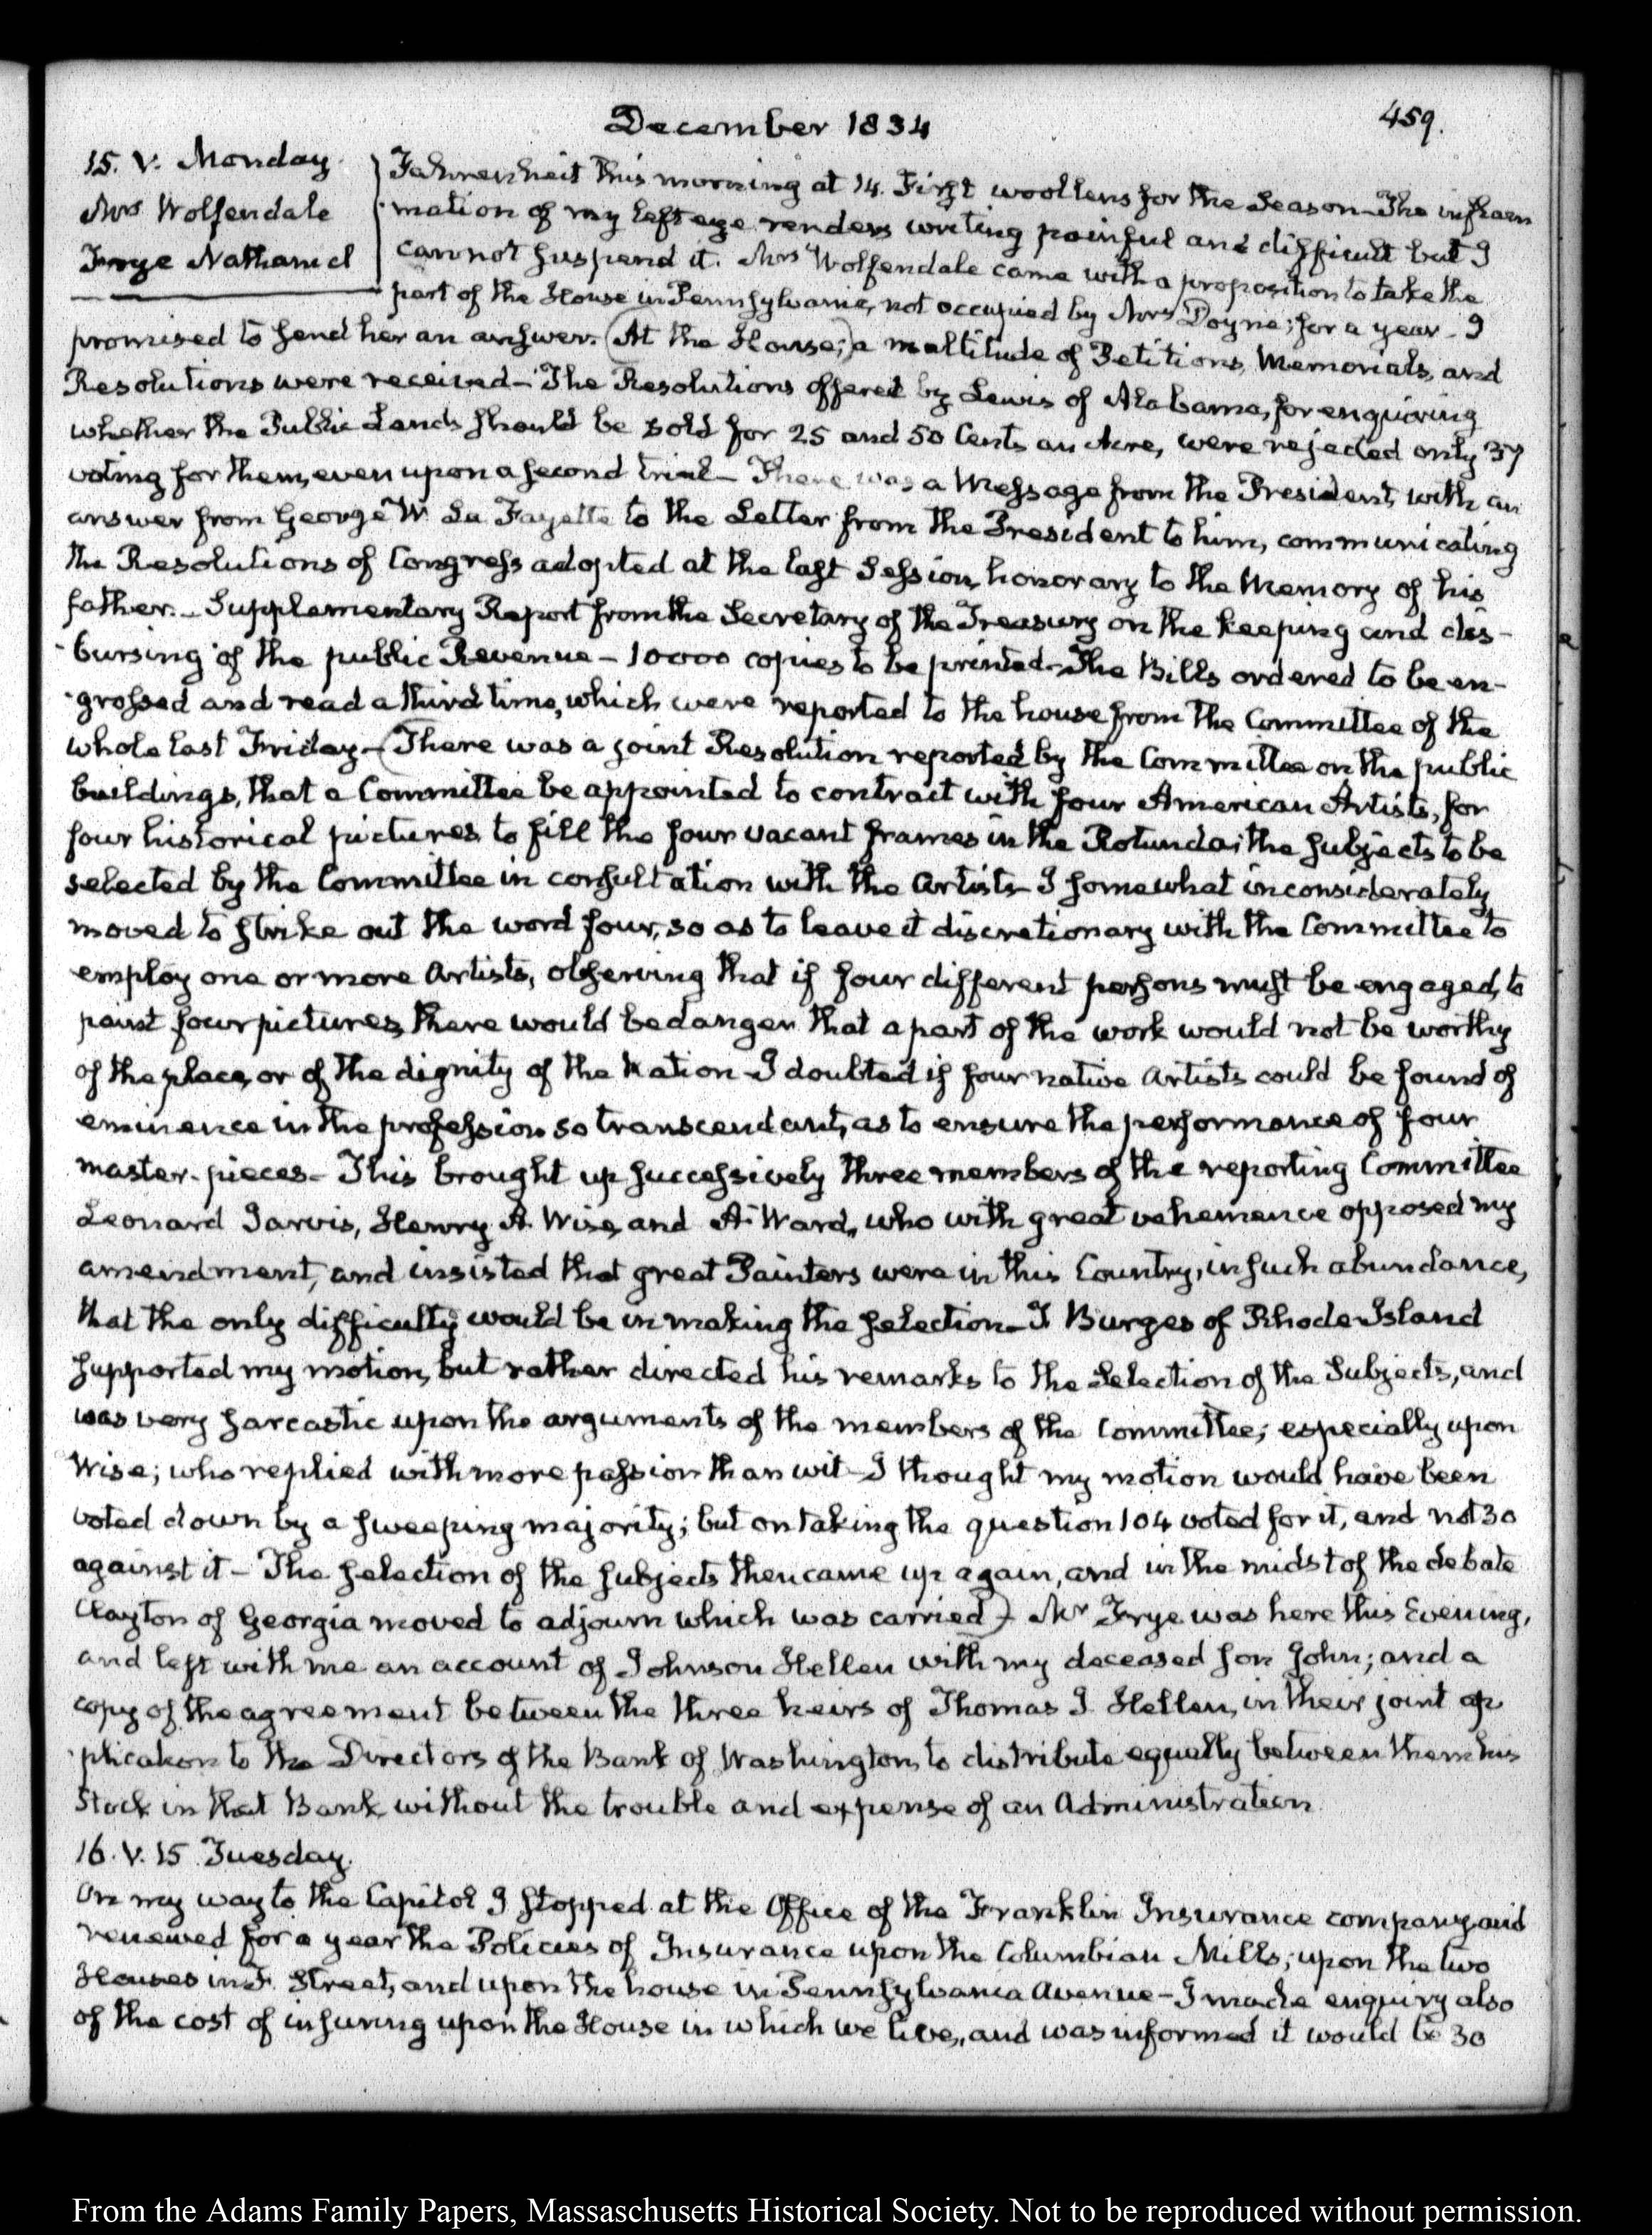 December 1834
459.
15. V. Monday.
Mrs Wolfendale
Frye Nathaniel
Fahrenheit this morning at 14. First woollens for the Season—The inflam
mation of my left eye renders writing painful and difficult but I
cannot suspend it. Mrs Wolfendale came with a proposition to take the
part of the House in Pennsylvania, not occupied by Mrs Doyne; for a year. I
promised to send her an answer. (At the House;) a multitude of Petitions, Memorials, and
Resolutions were received—The Resolutions offered by Lewis of Alabama, for enquiring
whether the Public Lands should be sold for 25 and 50 Cents an Acre, were rejected only 37
voting for them, even upon a second trial— There was a Message from the President, with an
answer from George W. La Fayette to the Letter from the President to him, communicating
the Resolutions of Congress adopted at the last Session, honorary to the Memory of his
father.— Supplementary Report from the Secretary of the Treasury on the keeping and dis-
-bursing of the public Revenue—10000 copies to be printed—The Bills ordered to be en-
-grossed and read a third time, which were reported to the house from the Committee of the
whole last Friday—(There was a joint Resolution reported by the Committee on the public
buildings, that a Committee be appointed to contract with four American Artists, for
four historical pictures to fill the four vacant frames in the Rotunda; the subjects to be
selected by the Committee in consultation with the Artists—I somewhat inconsiderately
moved to strike out the word four, so as to leave it discretionary with the Committee to
employ one or more Artists, observing that if four different persons must be engaged, to
paint four pictures, there would be danger that a part of the work would not be worthy
of the place, or of the dignity of the Nation—I doubted if four native Artists could be found of
eminence in the profession so transcendant, as to ensure the performance of four
master-pieces—This brought up successively three members of the reporting Committee
Leonard Jarvis, Henry A. Wise, and A. Ward, who with great vehemence opposed my
amendment, and insisted that great Painters were in this Country, in such abundance,
that the only difficulty would be in making the selection—T Burges of Rhode Island
supported my motion, but rather directed his remarks to the Selection of the Subjects, and
was very sarcastic upon the arguments of the members of the Committee; especially upon
Wise; who replied with more passion than wit—I thought my motion would have been
voted down by a sweeping majority; but on taking the question 104 voted for it, and not 30
against it—The selection of the subjects then came up again, and in the midst of the debate
Clayton of Georgia moved to adjourn which was carried)—Mr Frye was here this Evening,
and left with me an account of Johnson Hellen with my deceased son John; and a
copy of the agreement between the three heirs of Thomas J Hellen, in their joint ap
-plication to the Directors of the Bank of Washington, to distribute equally between them his
Stock in that Bank without the trouble and expense of an Administration.
16. V. 15 Tuesday.
On my way to the Capitol I stopped at the Office of the Franklin Insurance company, and
renewed for a year the Policies of Insurance upon the Columbian Mills; upon the two
Houses in F. Street, and upon the house in Pennsylvania Avenue—I made enquiry also
of the cost of insuring upon the House in which we live, and was informed it would be 30
From the Adams Family Papers, Massachusetts Historical Society. Not to be reproduced without permission.